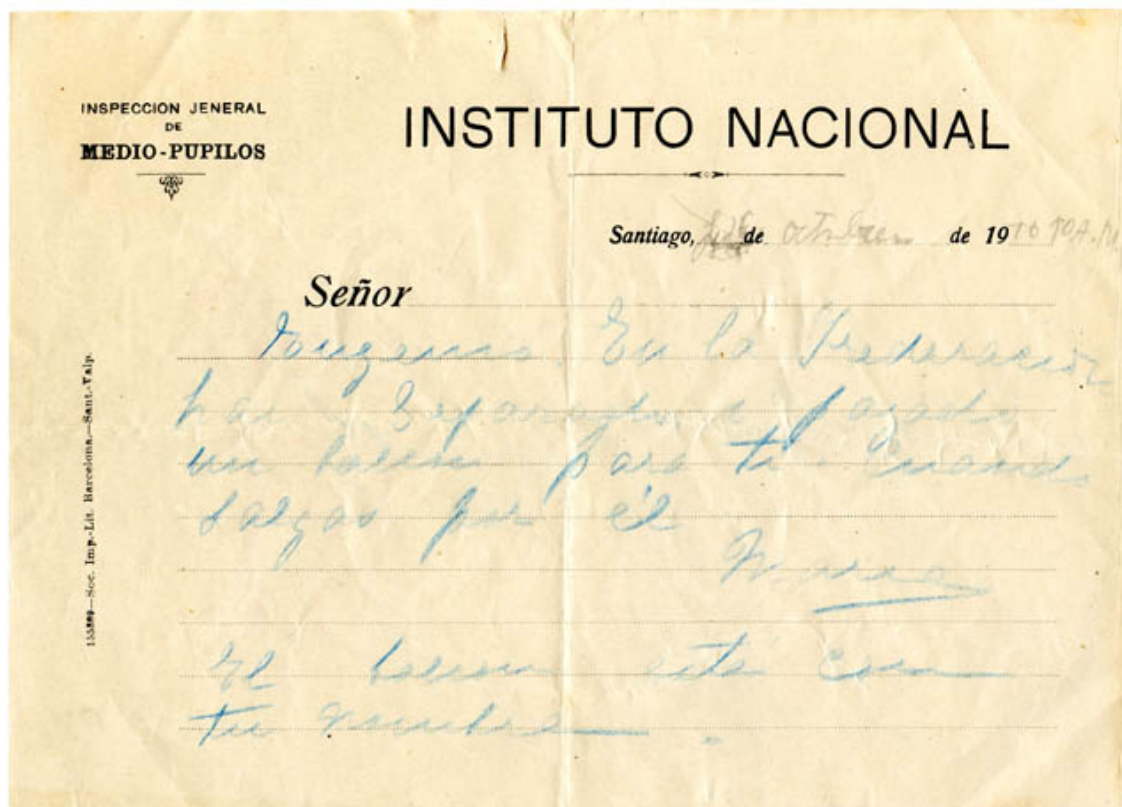 INSPECCION JENERAL
DE
MEDIO-PUPILOS
INSTITUTO NACIONAL
Santiago, de octubre de 19
Señor
En la Frederacion
han separado pagado
un para ti. Cuando
salgas por él

El esta con
tu nombre.
Soc. Imp.-Lit. Barcelona.—Sant.-Valp.